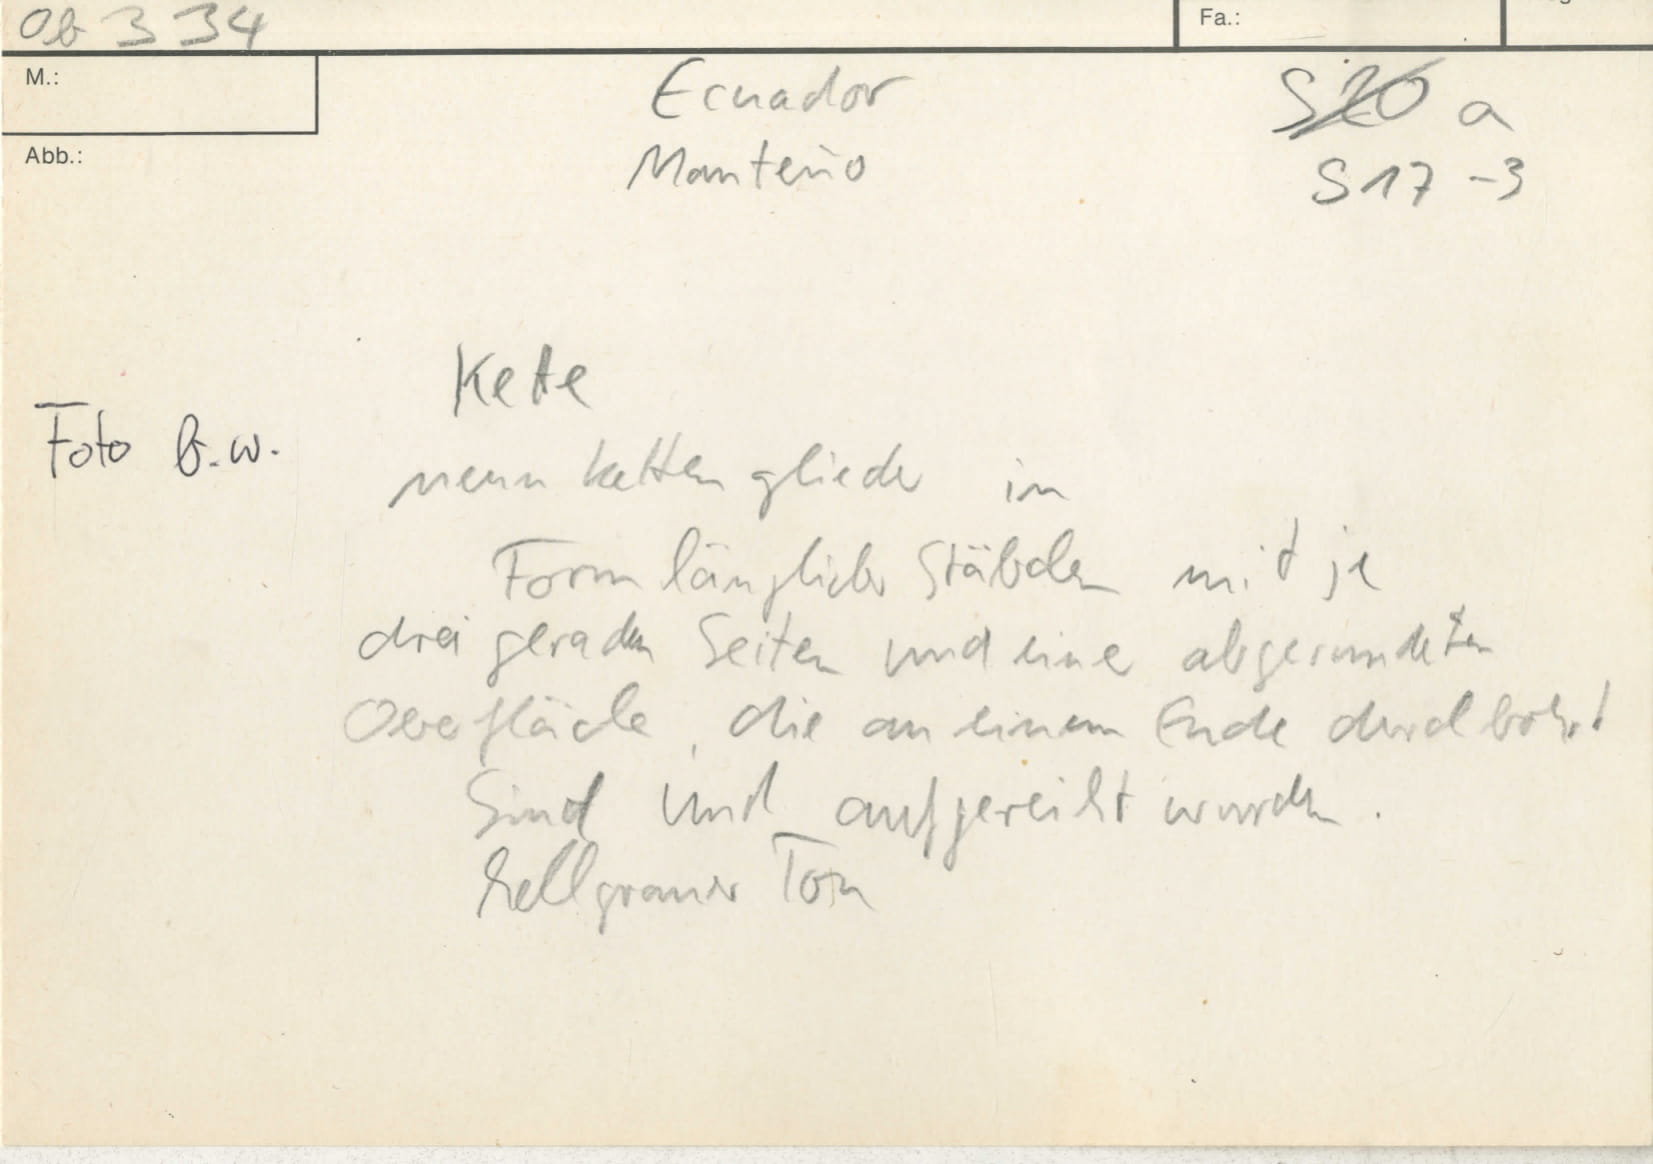 Ob 3 34
Fa.:
M.:
Ecuador
S20 a
Abb.:
Manteño
S17 -3
Kette
Foto b.w.
neun Kettenglieder in
Form länglicher Stäbchen mit je
drei geraden Seiten und einer abgerundeten
Oberfläche, die an einem Ende durchbohrt
sind und aufgereiht wurden.
hellgrauer Ton